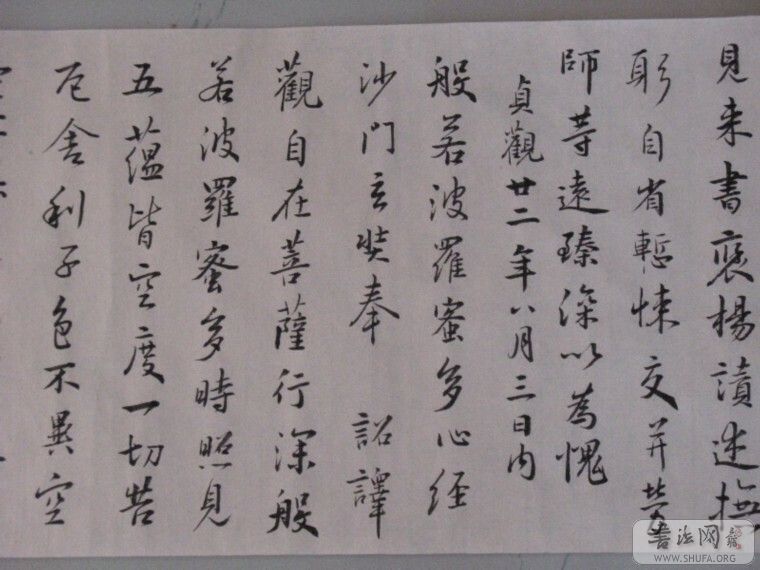 見来書褒楊讃述撫
躬自省慙悚交并勞
師等遠臻深以為愧
貞觀廿二年八月三日内
般若波羅蜜多心経
沙門玄奘奉 詔譯
觀自在菩薩行深般
若波羅蜜多時照見
五蘊皆空度一切苦
厄舍利子色不異空
书法网
WWW.SHUFA.ORG